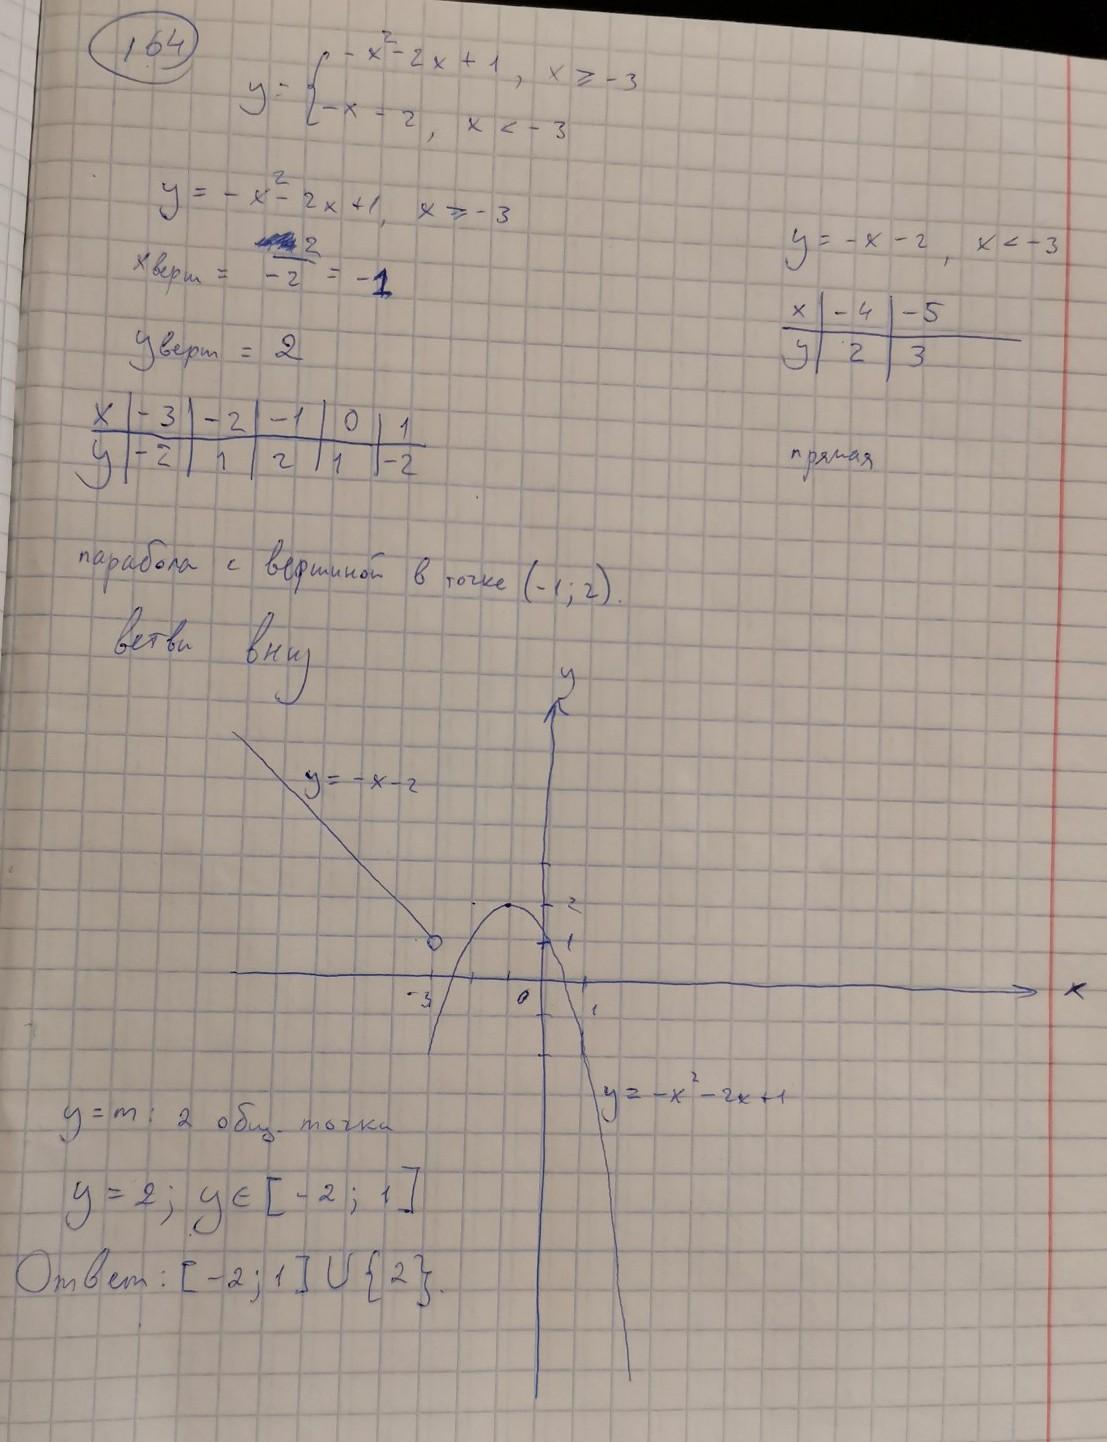 164
y = { -x² - 2x + 1, x ≥ -3
-x - 2, x < -3
y = -x² - 2x + 1, x ≥ -3
xверт = 2/-2 = -1
yверт = 2
x | -3 | -2 | -1 | 0 | 1
y | -2 | 1 | 2 | 1 | -2
y = -x - 2, x < -3
x | -4 | -5
y | 2 | 3
прямая
парабола с вершиной в точке (-1; 2).
ветви вниз
y
y = -x - 2
2
1
-3
0
1
x
y = -x² - 2x + 1
y = m: 2 общ. точки
y = 2; y ∈ [-2; 1]
Ответ: [-2; 1] ∪ {2}.